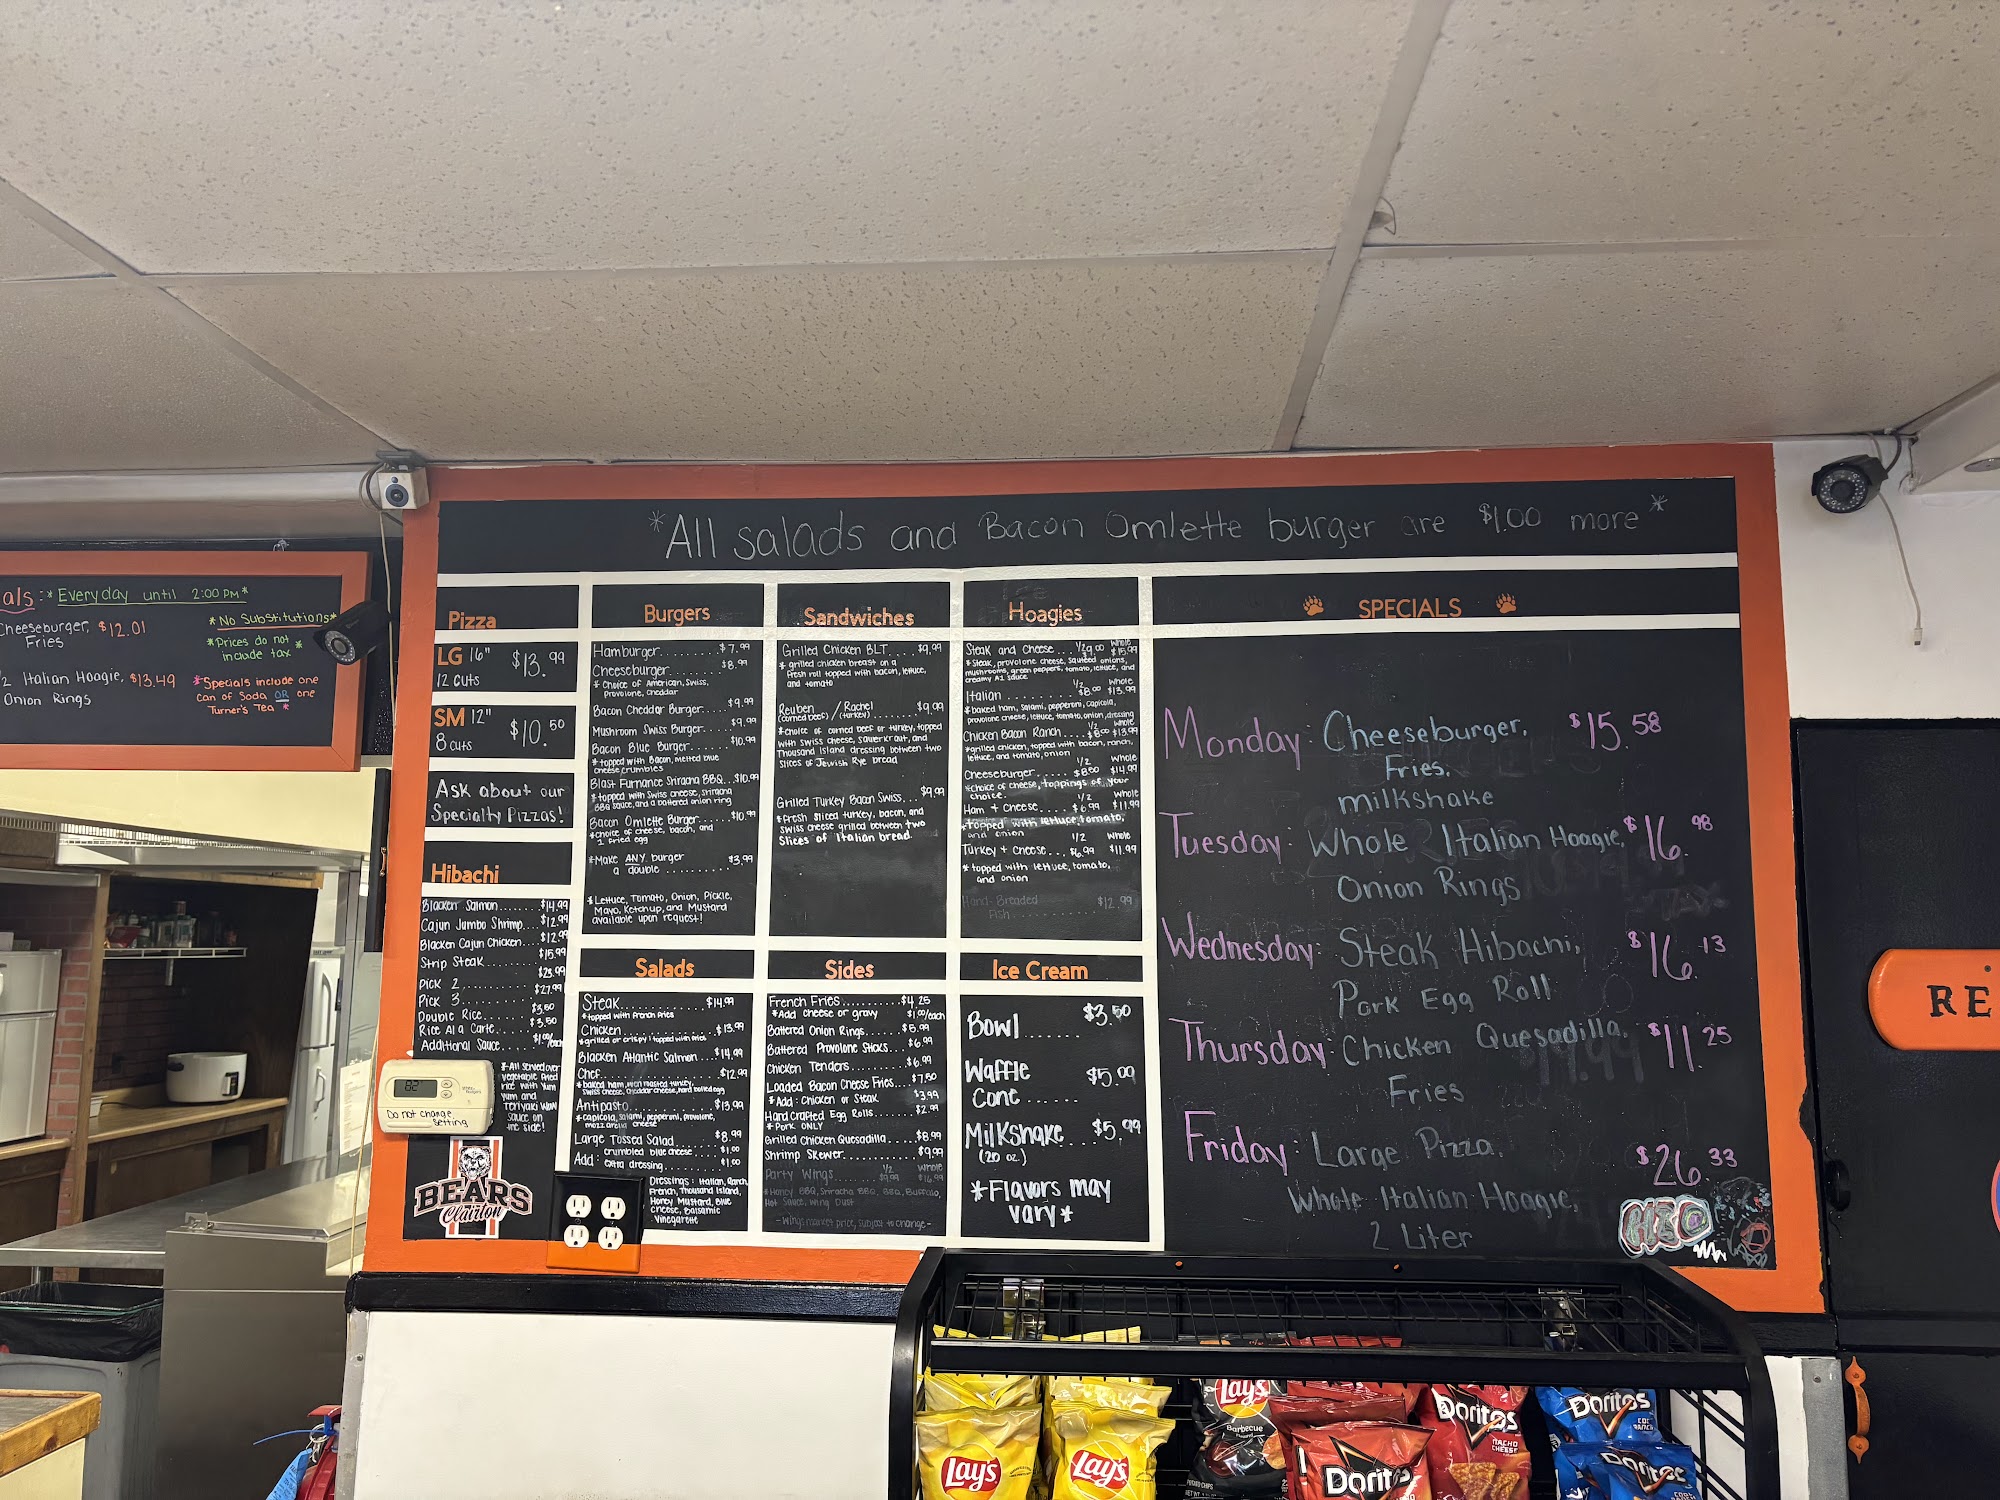 als: *Everyday until 2:00 PM*
Cheeseburger, $12.01
Fries
Italian Hoagie, $13.49
Onion Rings
*No Substitutions*
*Prices do not
include tax*
*Specials include one
can of Soda OR one
Turner's Tea*
*All salads and Bacon Omlette burger are $1.00 more*
Pizza
LG 16" $13.99
12 cuts
SM 12" $10.50
8 cuts
Ask about our
Specialty Pizzas!
Hibachi
Blacken Salmon....$14.99
Cajun Jumbo Shrimp...$12.99
Blacken Cajun Chicken...$12.99
Strip Steak........$15.99
Pick 2..........$23.99
Pick 3..........$27.99
Double Rice......$3.50
Rice Ala Carte....$3.50
Additional Sauce....$1.00/each
*All served over
vegetable fried
rice with Yum
Yum and
Teriyaki
sauce on
the side!
Do not change
setting
BEARS
Clairton
Burgers
Hamburger........$7.99
Cheeseburger........$8.99
*Choice of American, Swiss,
Provolone, Cheddar
Bacon Cheddar Burger....$9.99
Mushroom Swiss Burger....$9.99
Bacon Blue Burger......$10.99
*topped with Bacon, melted blue
cheese crumbles
Blast Furnance Sriracha BBQ...$10.99
*topped with Swiss cheese, sriracha
BBQ sauce, and a battered onion ring
Bacon Omlette Burger......$10.99
*choice of cheese, bacon, and
1 fried egg
*Make ANY burger
a double..........$3.99
*Lettuce, Tomato, Onion, Pickle,
Mayo, Ketchup, and Mustard
available upon request!
Salads
Steak..............$14.99
*topped with french fries
Chicken............$13.99
*grilled or crispy | topped with fries
Blacken Atlantic Salmon...$14.99
Chef..............$12.99
*baked ham, oven roasted turkey,
Swiss cheese, cheddar cheese, hard boiled egg
Antipasto............$13.99
*capicola, salami, pepperoni, provolone,
mozzarella cheese
Large Tossed Salad....$8.99
Add: crumbled blue cheese....$1.00
extra dressing.......$1.00
Dressings: Italian, Ranch,
French, Thousand Island,
Honey Mustard, Blue
Cheese, Balsamic
Vinegarette
Sandwiches
Grilled Chicken BLT.....$9.99
*grilled chicken breast on a
fresh roll topped with bacon, lettuce,
and tomato
Reuben / Rachel
(corned beef) / (turkey)........$9.99
*choice of corned beef or turkey, topped
with swiss cheese, sauerkraut, and
Thousand Island dressing between two
slices of Jewish Rye bread
Grilled Turkey Bacon Swiss...$9.99
*fresh sliced turkey, bacon, and
swiss cheese grilled between two
slices of Italian bread.
Sides
French Fries..........$4.25
*Add cheese or gravy $1.00/each
Battered Onion Rings......$5.99
Battered Provolone Sticks...$6.99
Chicken Tenders........$6.99
Loaded Bacon Cheese Fries....$7.50
*Add: Chicken or Steak $3.99
Hand Crafted Egg Rolls.....$2.99
*Pork ONLY
Grilled Chicken Quesadilla.....$8.99
Shrimp Skewer............$9.99
Party Wings........1/2 $9.99 Whole $16.99
*Honey BBQ, Sriracha BBQ, BBQ, Buffalo,
Hot Sauce, Wing Dust
-Wings market price, subject to change-
Hoagies
Steak and Cheese....1/2 $9.00 Whole $15.99
*Steak, provolone cheese, sauteed onions,
mushrooms, green peppers, tomato, lettuce, and
creamy A1 sauce
Italian........1/2 $8.00 Whole $13.99
*baked ham, salami, pepperoni, capicola,
provolone cheese, lettuce, tomato, onion, dressing
Chicken Bacon Ranch....1/2 $8.00 Whole $13.99
*grilled chicken, topped with bacon, ranch,
lettuce, and tomato, onion
Cheeseburger.....1/2 $8.00 Whole $14.99
*choice of cheese, toppings of your
choice.
Ham + Cheese....1/2 $6.99 Whole $11.99
*topped with lettuce, tomato,
and onion
Turkey + Cheese...1/2 $6.99 Whole $11.99
*topped with lettuce, tomato,
and onion
Hand-Breaded
Fish..............$12.99
Ice Cream
Bowl.......$3.50
Waffle
Cone......$5.00
Milkshake...$5.99
(20 oz.)
*Flavors may
vary*
SPECIALS
Monday: Cheeseburger, $15.58
Fries,
milkshake
Tuesday: Whole Italian Hoagie, $16.98
Onion Rings
Wednesday: Steak Hibachi, $16.13
Pork Egg Roll
Thursday: Chicken Quesadilla, $11.25
Fries
Friday: Large Pizza, $26.33
Whole Italian Hoagie,
2 Liter
RE
Lay's
Lay's
Lay's
Barbecue
Doritos
Doritos
NACHO
CHEESE
Doritos
COOL
RANCH
Doritos